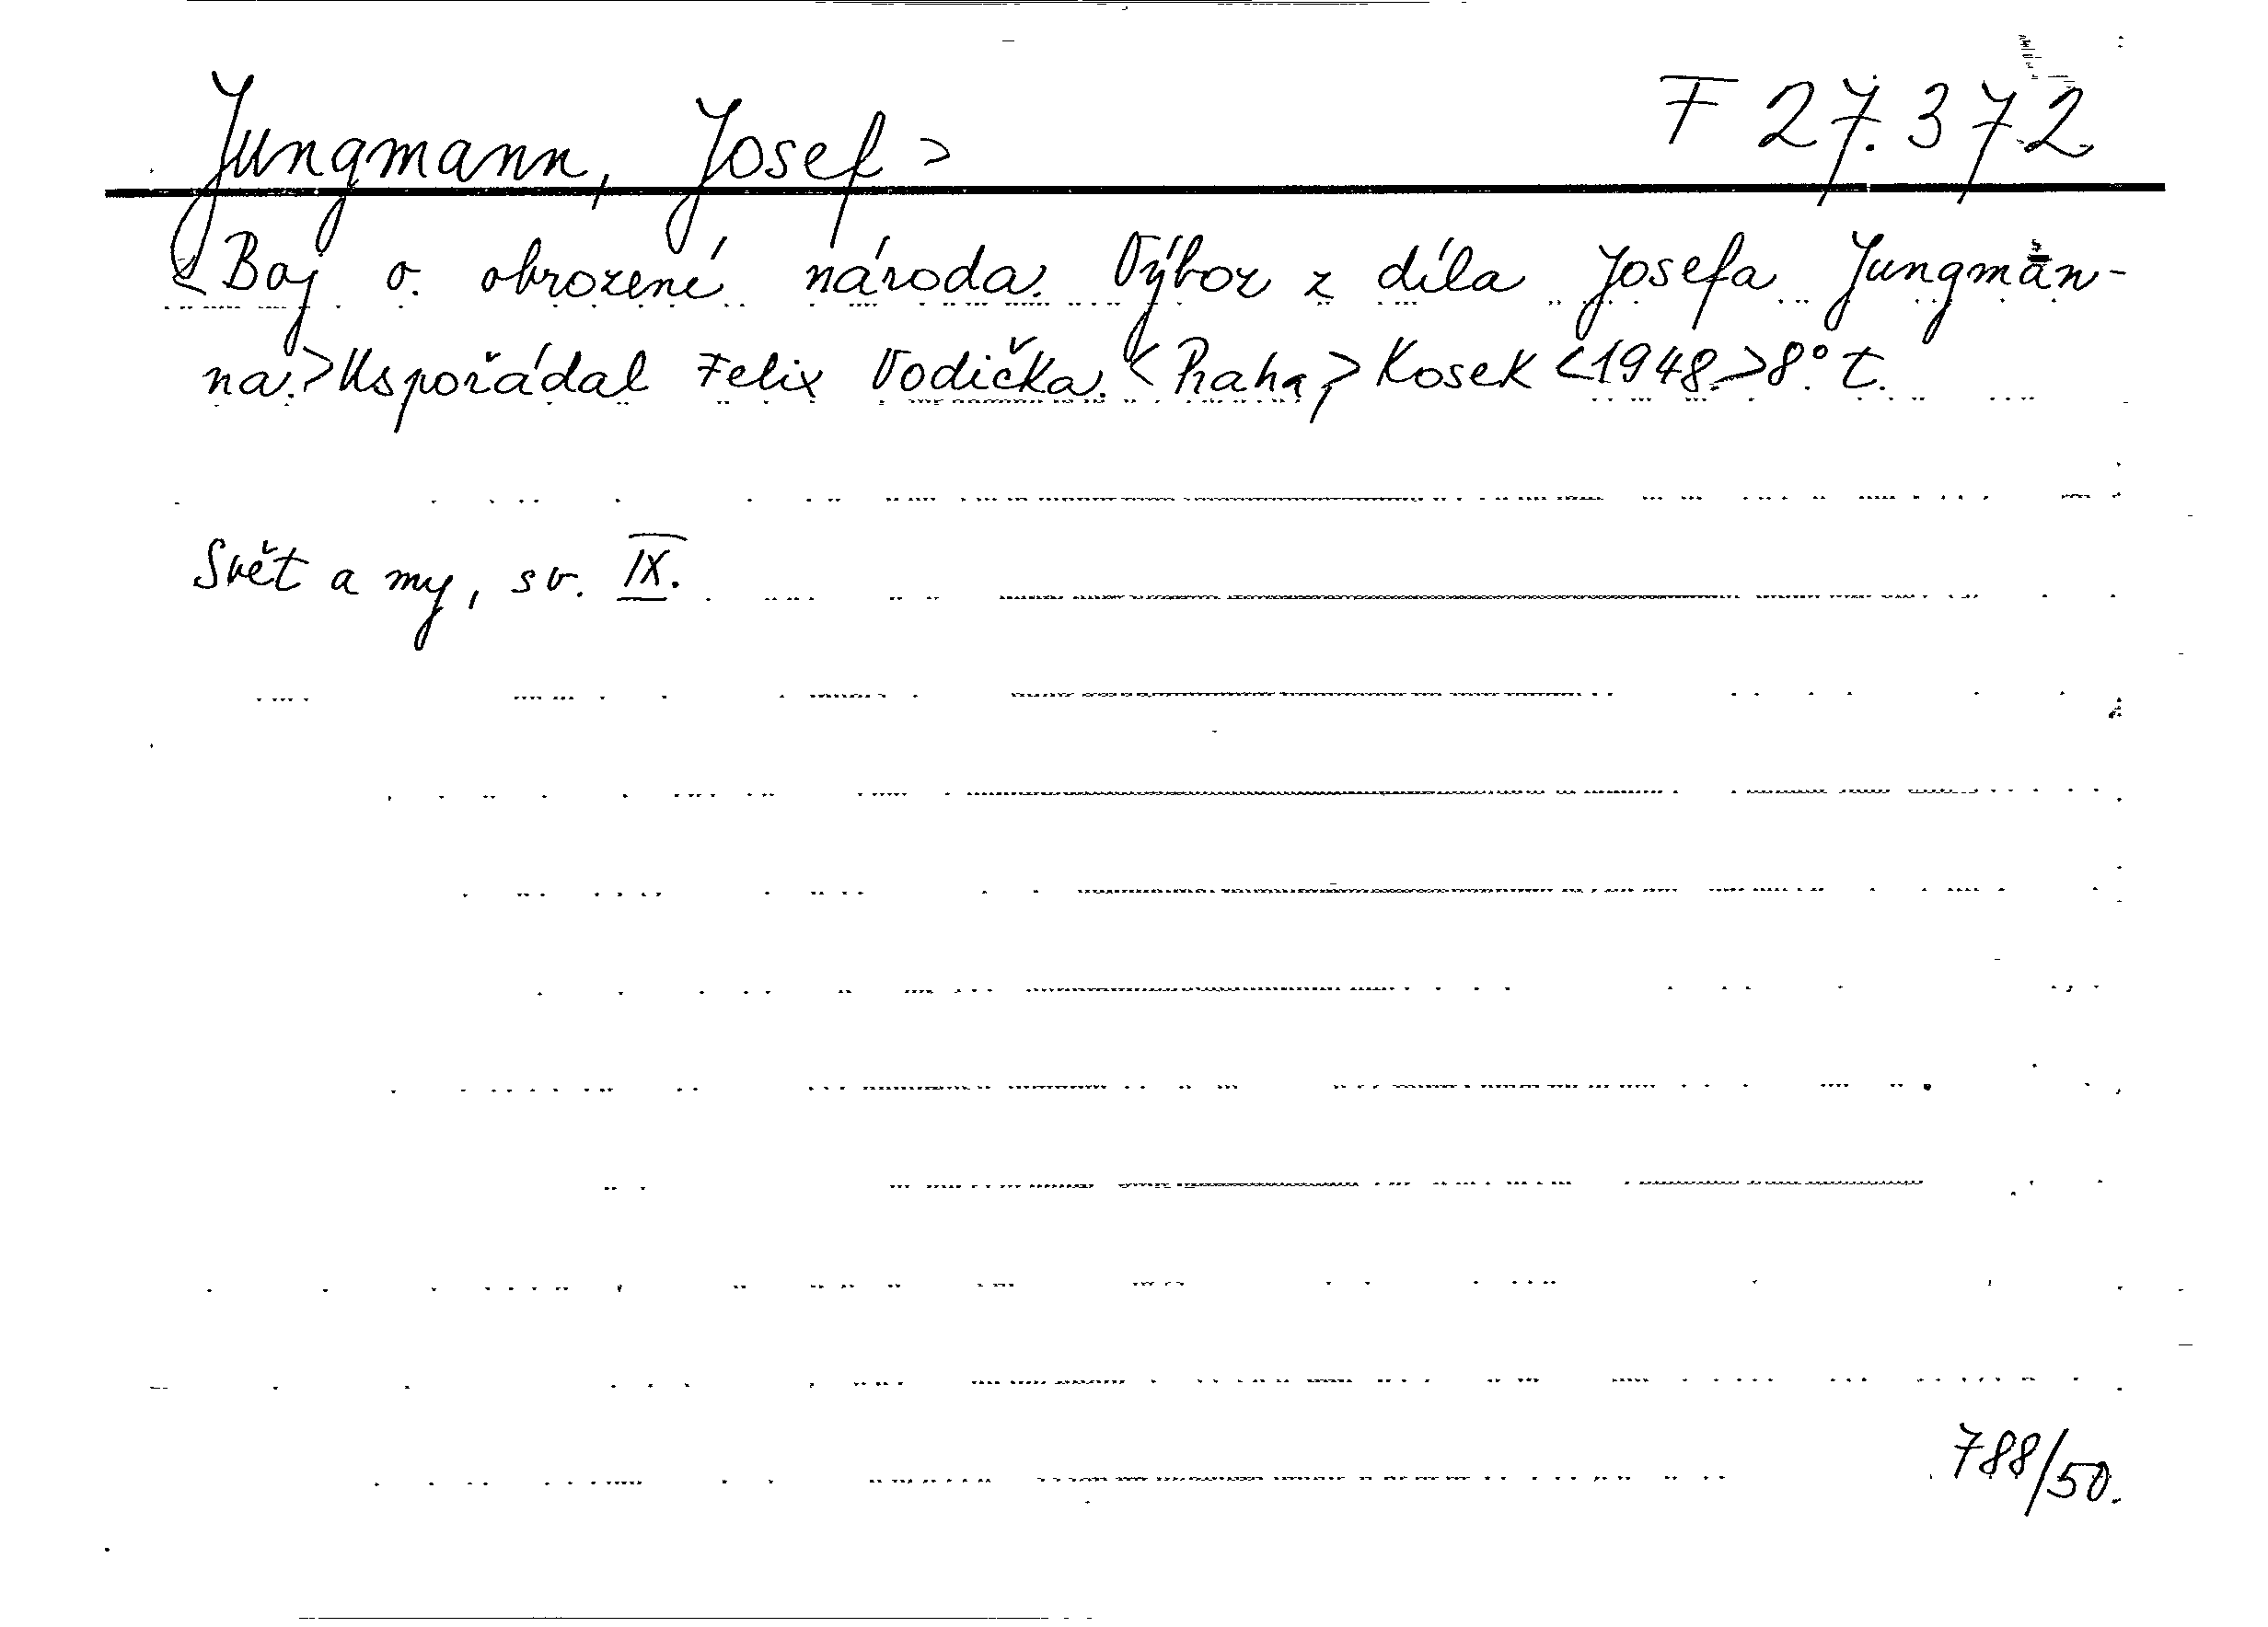 Jungmann, Josef > F 27.372
<Boj o obrození národa. Výbor z díla Josefa Jungman-
na.> Uspořádal Felix Vodička. <Praha,> Kosek <1948.> 8° t.
Svět a my, sv. IX.
788/50.